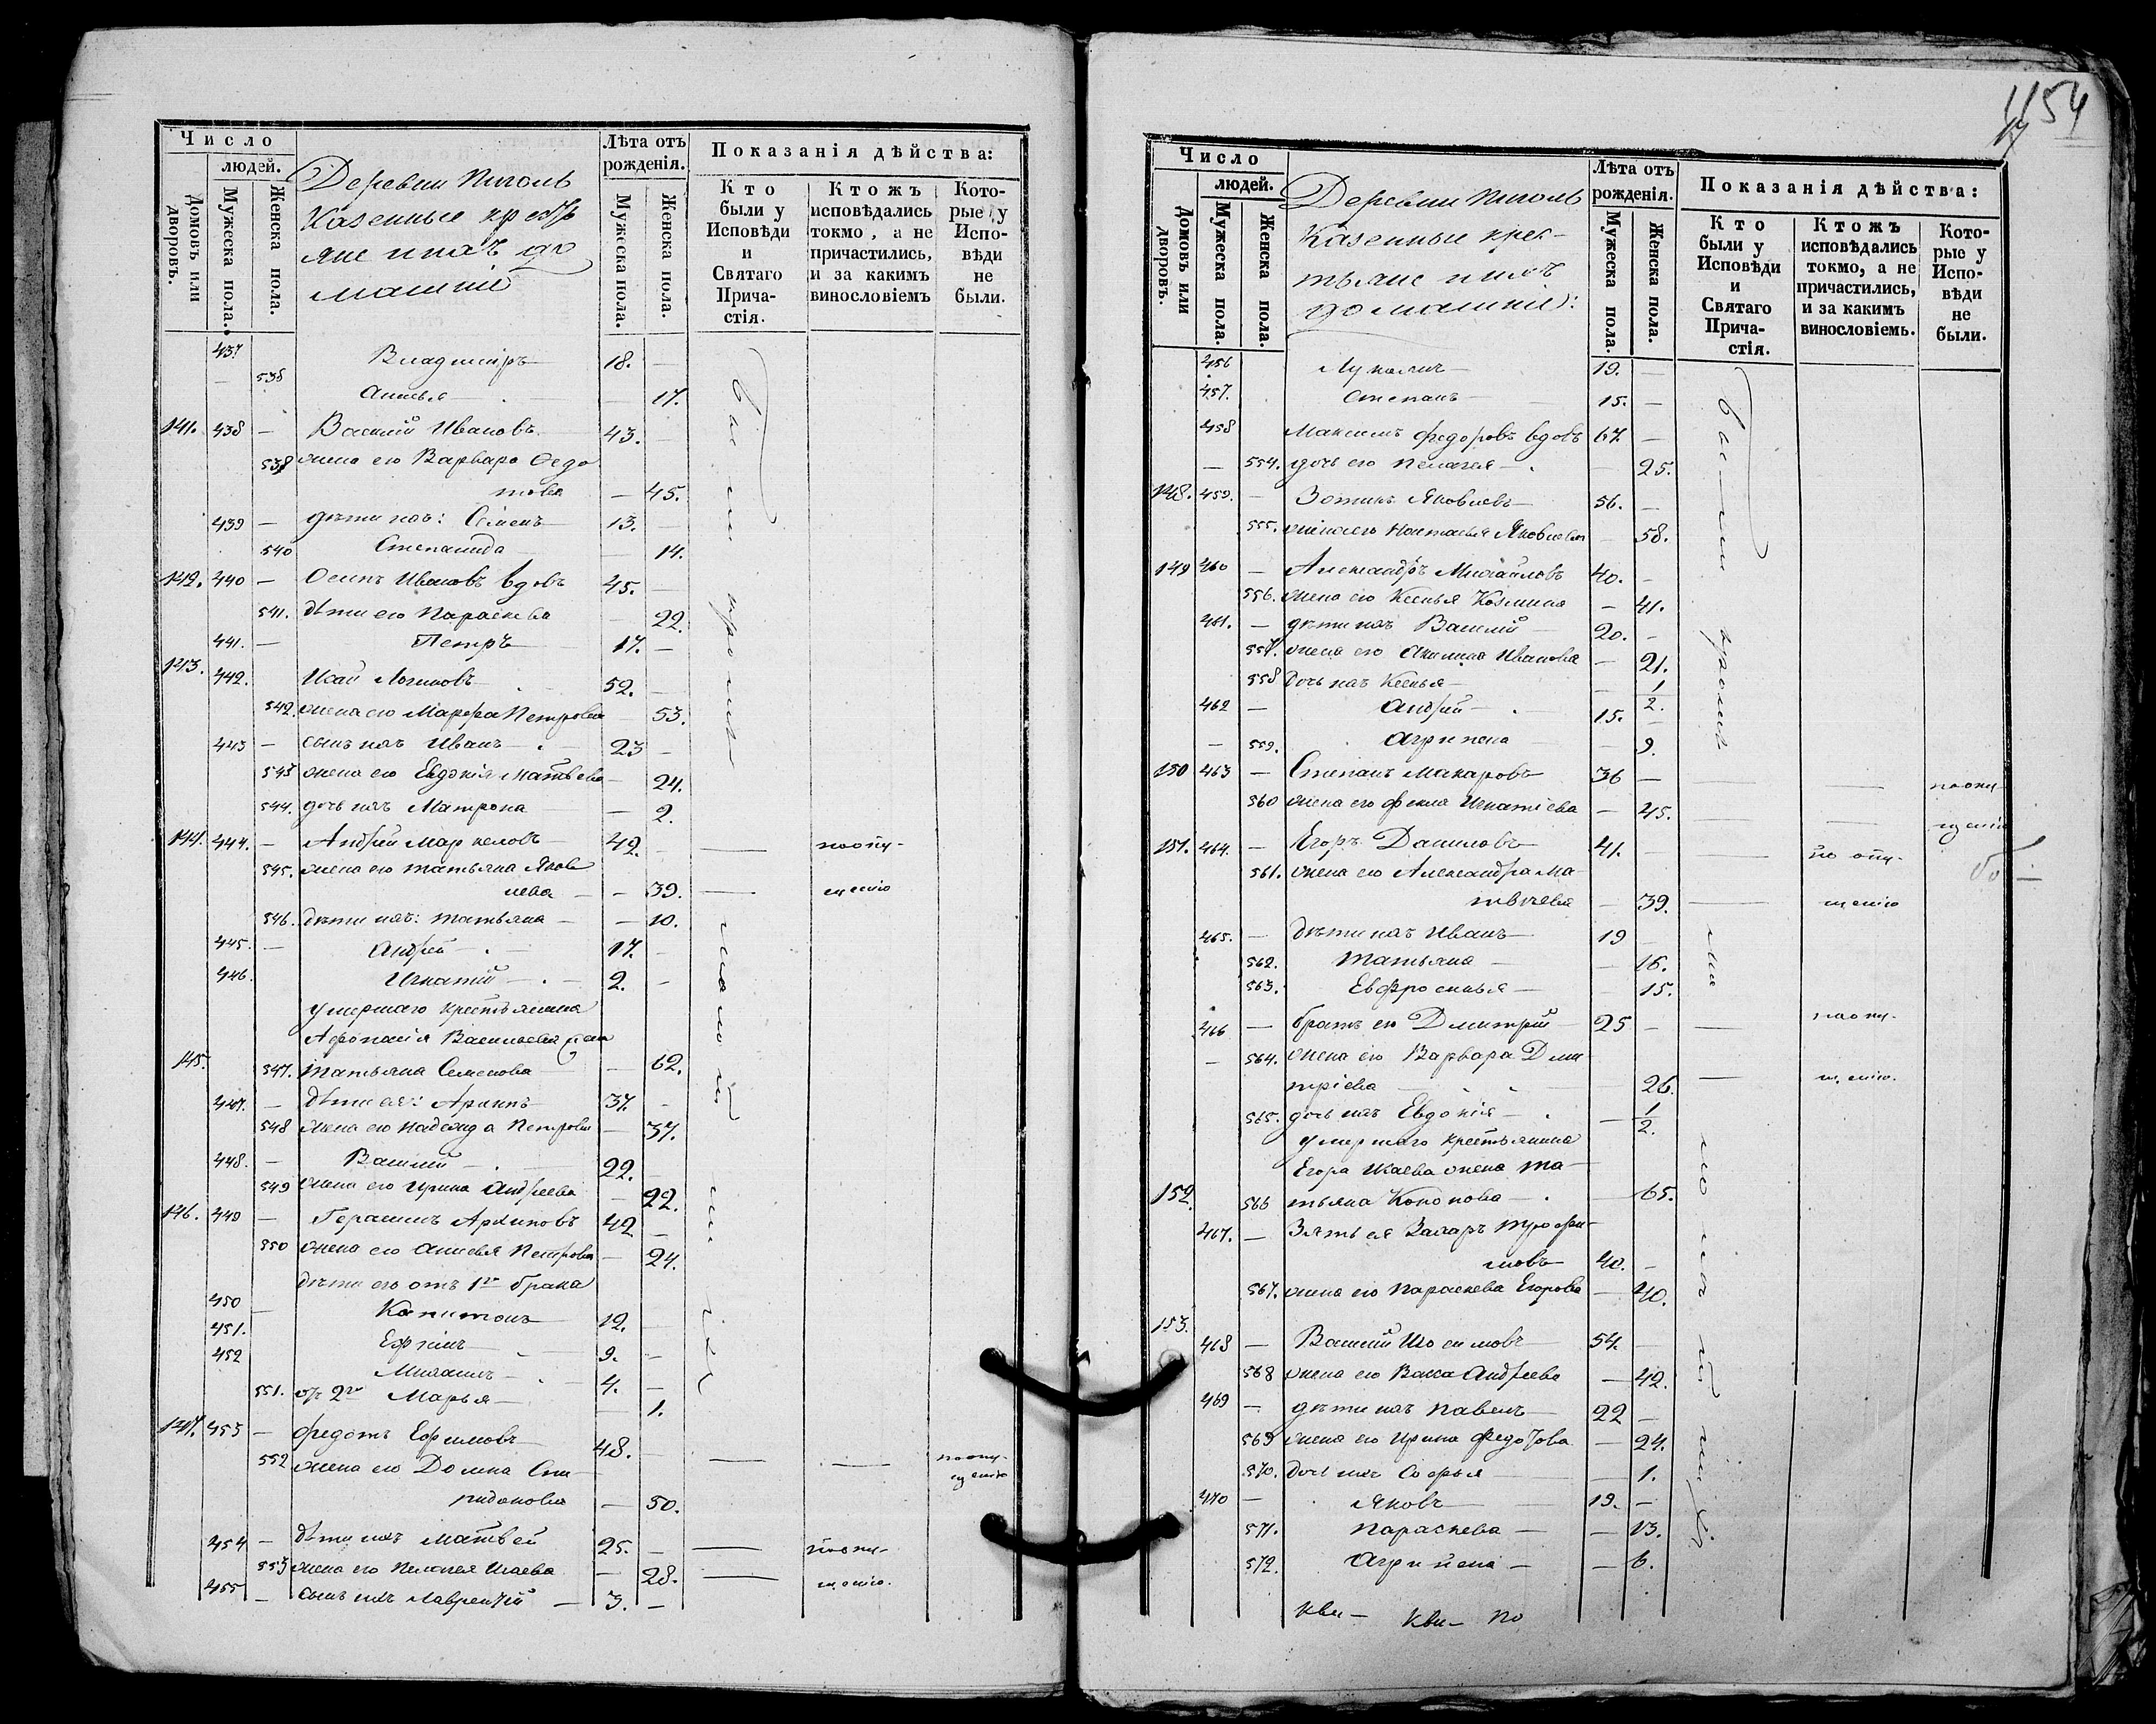 Число
людей.
Домовъ или дворовъ.
Мужеска пола.
Женска пола.
Деревни Пиголь
Казенные кресть
яне и ихъ до
машніе
Лѣта отъ рожденія.
Мужеска пола.
Женска пола.
Показанія дѣйства:
Кто были у Исповѣди и Святаго Причастія.
Ктожъ исповѣдались токмо, а не причастились, и за какимъ винословіемъ
Которые у Исповѣди не были.
437 Владиміръ 18. —
— 538 Анисья — 17.
141. 438 — Василий Ивановъ 43. —
539 жена его Варвара Федо
това — 45.
439 — дѣти ихъ: Семенъ 13. —
540 Степанида — 14.
142. 440 — Осипъ Ивановъ вдовъ 45. —
541. дѣти его Параскева — 22.
441. — Петръ 17. —
143. 442. Исай Логиновъ 52. —
542. жена его Марфа Петрова — 53.
443 — сынъ ихъ Иванъ 23 —
543 жена его Евдокія Матвѣева — 24.
544. дочь ихъ Матрона — 2.
144. 444. — Андрей Маркеловъ 42. — — по опу-
545. жена его Татьяна Яков
лева — 39. — щенію
546. дѣти ихъ: Татьяна — 10.
445. — Андрей 17. —
446. Игнатій 2. —
умершаго крестьянина
Афонасія Васильева жена
145. 547. Татьяна Семенова — 62.
447. — дѣти ея: Архипъ 37. —
548 жена его Надежда Петрова — 37.
448. — Василий 22. —
549 жена его Ирина Андреева — 22.
146. 449 — Герасимъ Архиповъ 42 —
550 жена его Анисья Петрова — 24.
дѣти его отъ 1го брака
450 — Капитонъ 12.
451. Ефимъ 9. —
452 Михаилъ 4. —
551. отъ 2го Марья — 1.
147. 453 — Федотъ Ефимовъ 48. — — — по опу-
щенію
552 жена его Домна Спи
ридонова — 50.
454 — дѣти ихъ Матвей 25. — — по опу-
553 жена его Пелагея Исаева — 28. — щенію.
455 — сынъ ихъ Лаврентій 3. —
были кромѣ
малолѣ

1154
Число
людей.
Домовъ или дворовъ.
Мужеска пола.
Женска пола.
Деревни Пиголь
Казенные крес-
тьяне и ихъ
домашніе:
Лѣта отъ рожденія.
Мужеска пола.
Женска пола.
Показанія дѣйства:
Кто были у Исповѣди и Святаго Причастія.
Ктожъ исповѣдались токмо, а не причастились, и за какимъ винословіемъ.
Которые у Исповѣди не были.
456 Лукьянъ 19. —
457. Степанъ 15. —
458 Максимъ Федоровъ вдовъ 67 —
— 554. дочь его Пелагея — 25.
148. 459. — Зотикъ Яковлевъ 56. —
555. жена его Настасья Яковлева — 58.
149 460 — Александръ Михайловъ 40. —
556. жена его Ксенья Козмина — 41.
461. — дѣти ихъ Василий 20. —
557. жена его Акилина Иванова — 21.
558 дочь ихъ Ксенья — 1/2.
462 — Андрей 15. —
— 559. Агрипена — 9.
150 463 — Степанъ Макаровъ 36 — — — по опу-
560 жена его Фекла Игнатіева — 45. — щенію
151. 464. — Егоръ Даниловъ 41. — — по опу-
561. жена его Александра Ма-
твѣева — 39. — щенію
465. — дѣти ихъ Иванъ 19 —
562. Татьяна — 16.
563. Евфросинья — 15.
466 — братъ его Дмитрій 25 — — по опу-
— 564. жена его Варвара Дми-
тріева 26 — щенію.
565. дочь ихъ Евдокія — 1/2.
умершаго крестьянина
Егора Исаева жена Та-
152. 566 тьяна Кононова — 65.
467. — Зять ея Захаръ Трофи-
мовъ 40. —
567. жена его Параскева Егорова — 40.
153. 468 — Василий Изосимовъ 54. —
568 жена его Васса Андреева — 42.
469 — дѣти ихъ Павелъ 22 —
569 жена его Ирина Федотова — 24.
570. дочь ихъ Софья — 1.
470 — Яковъ 19. —
571. Параскева — 13.
572. Агрипена — 6.
были кромѣ
Кви- Кви- по